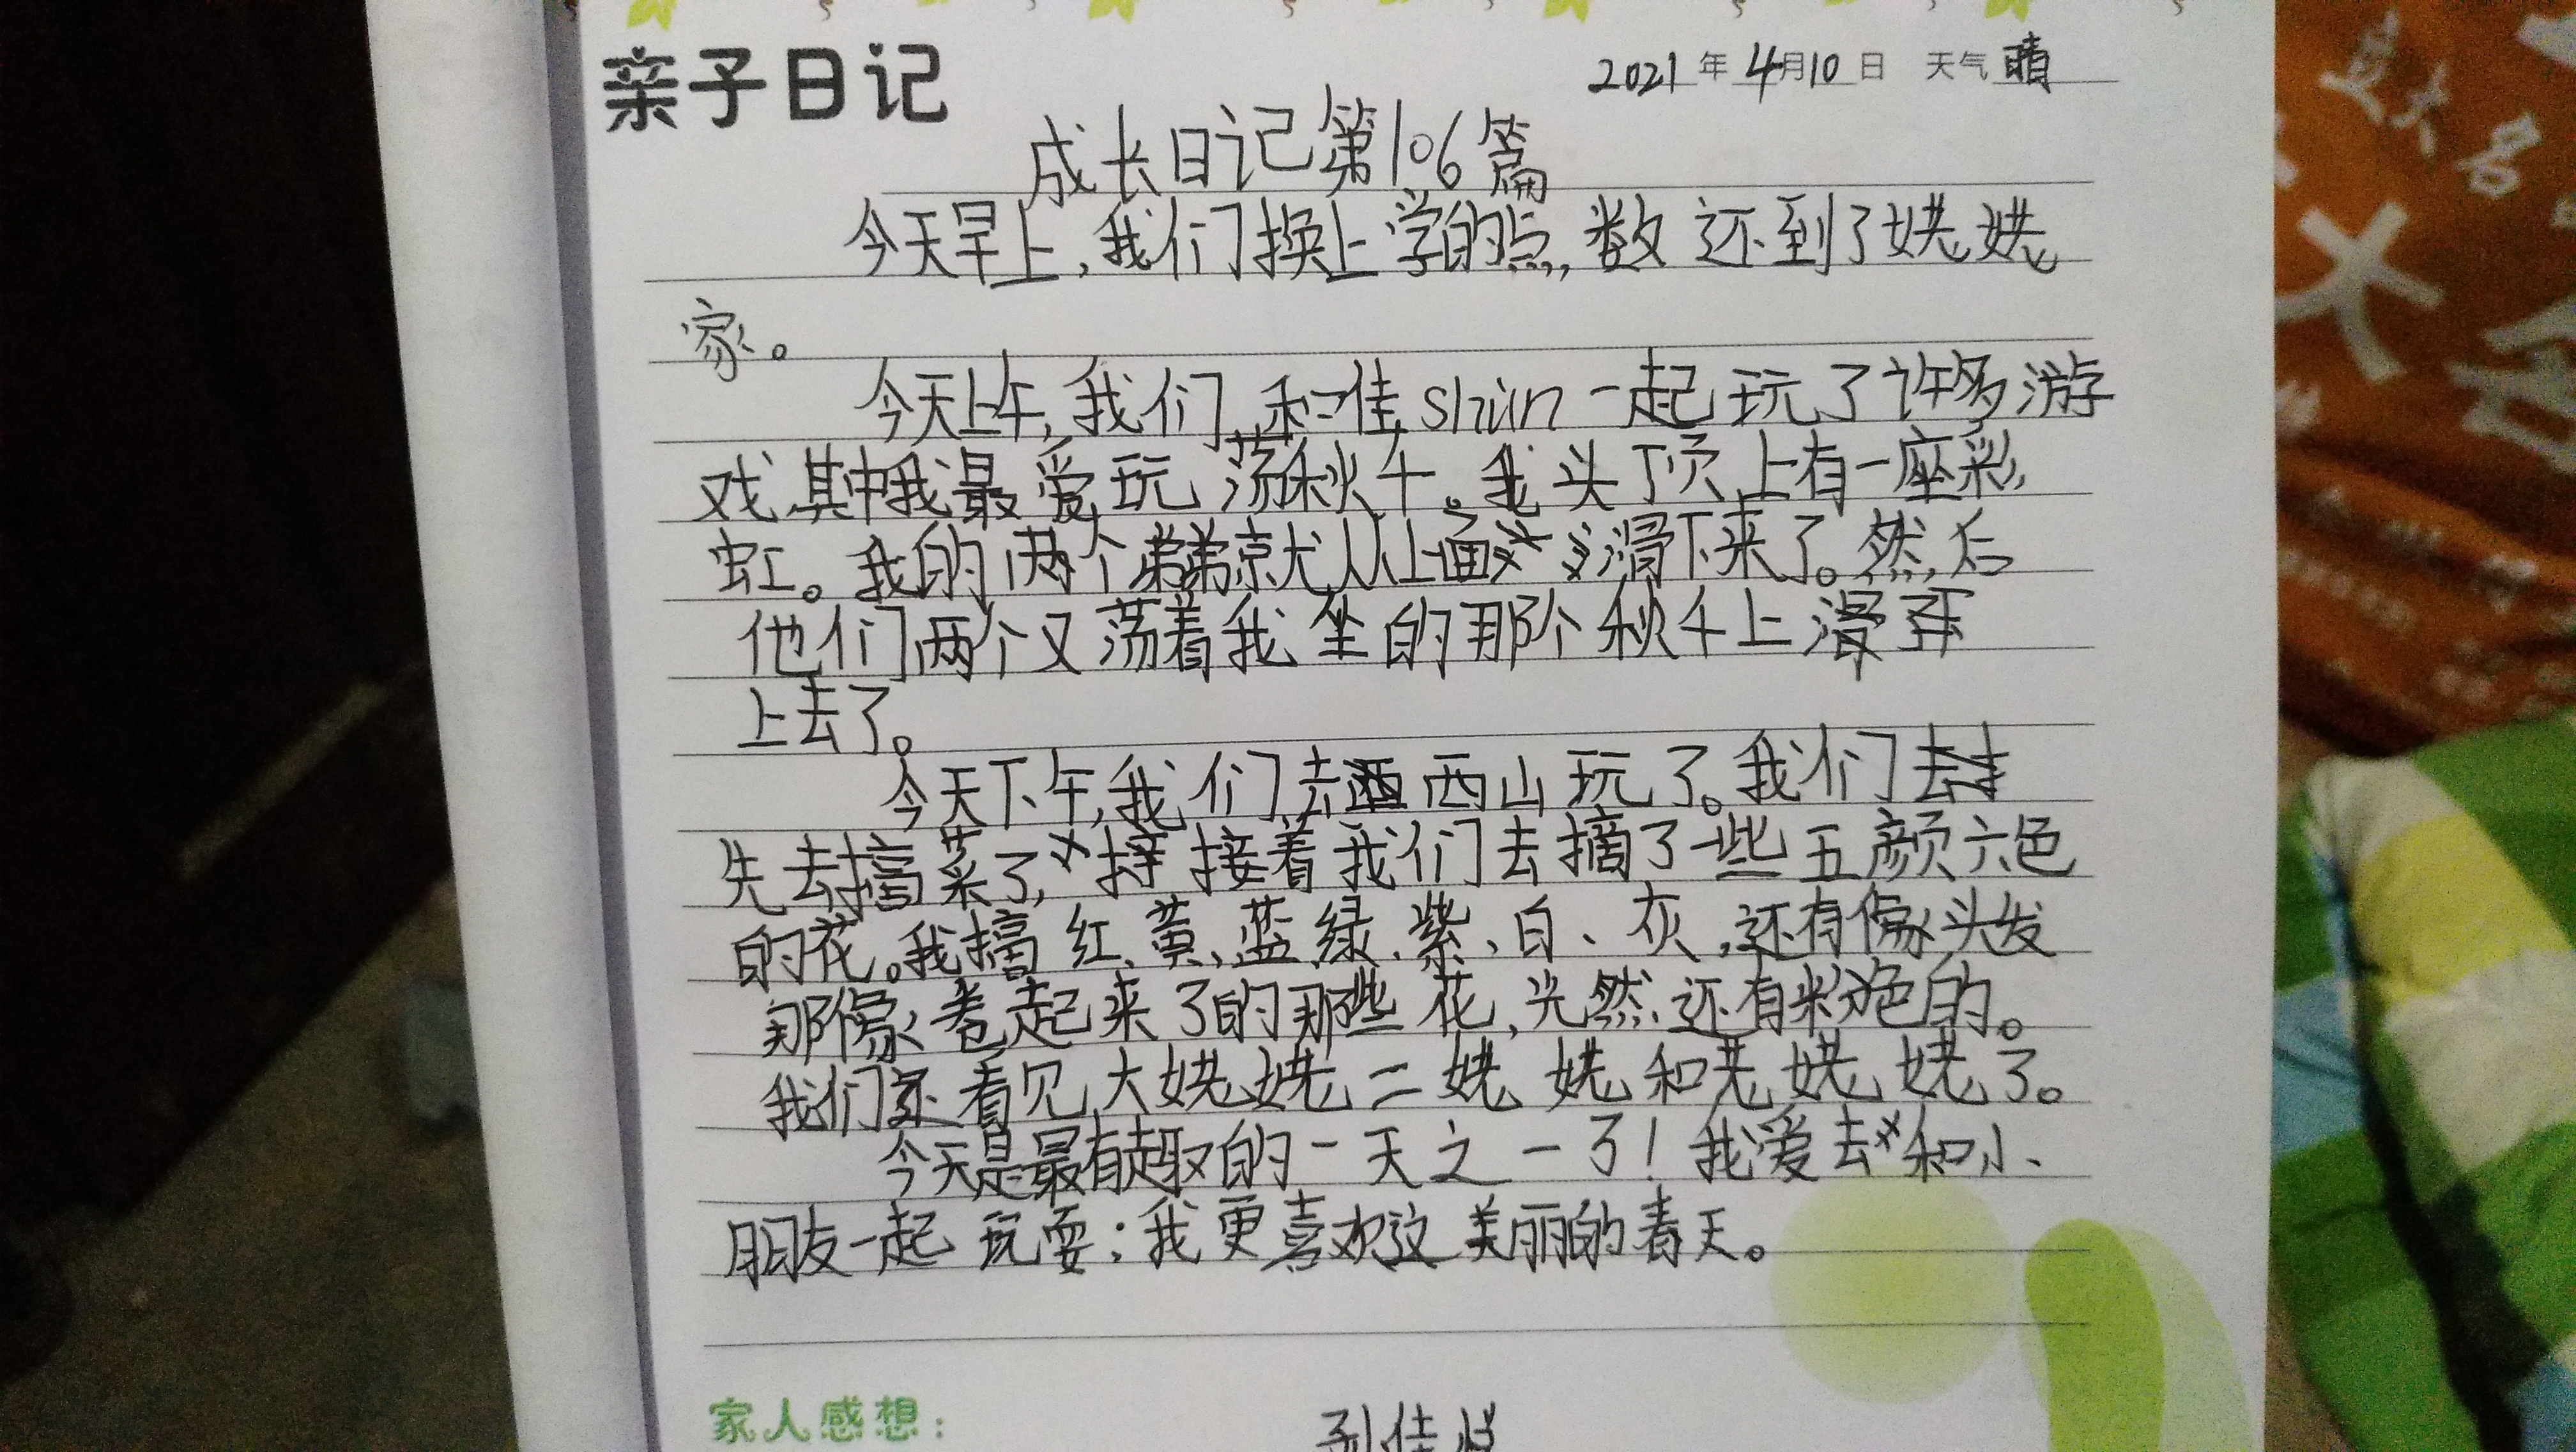 亲子日记
2021年4月10日 天气 晴
成长日记第106篇
今天早上,我们换上学的点,数还到了姥姥
家。
今天上午,我们和佳shun一起玩了许多游
戏,其中我最爱玩荡秋千。我头顶上有一座彩
虹。我的两个弟弟就从上面滑下来了。然后
他们两个又荡着我坐的那个秋千上滑
上去了。
今天下午,我们去西山玩了。我们
先去搞菜了,接着我们去摘了一些五颜六色
的花。我搞红、黄、蓝、绿、紫、白、灰,还有像头发
那像卷起来了的那些花,当然还有粉色的。
我们还看见大姥姥二姥姥和老姥姥了。
今天是最有趣的一天之一了!我爱去和小
朋友一起玩耍;我更喜欢这美丽的春天。
家人感想:
佳